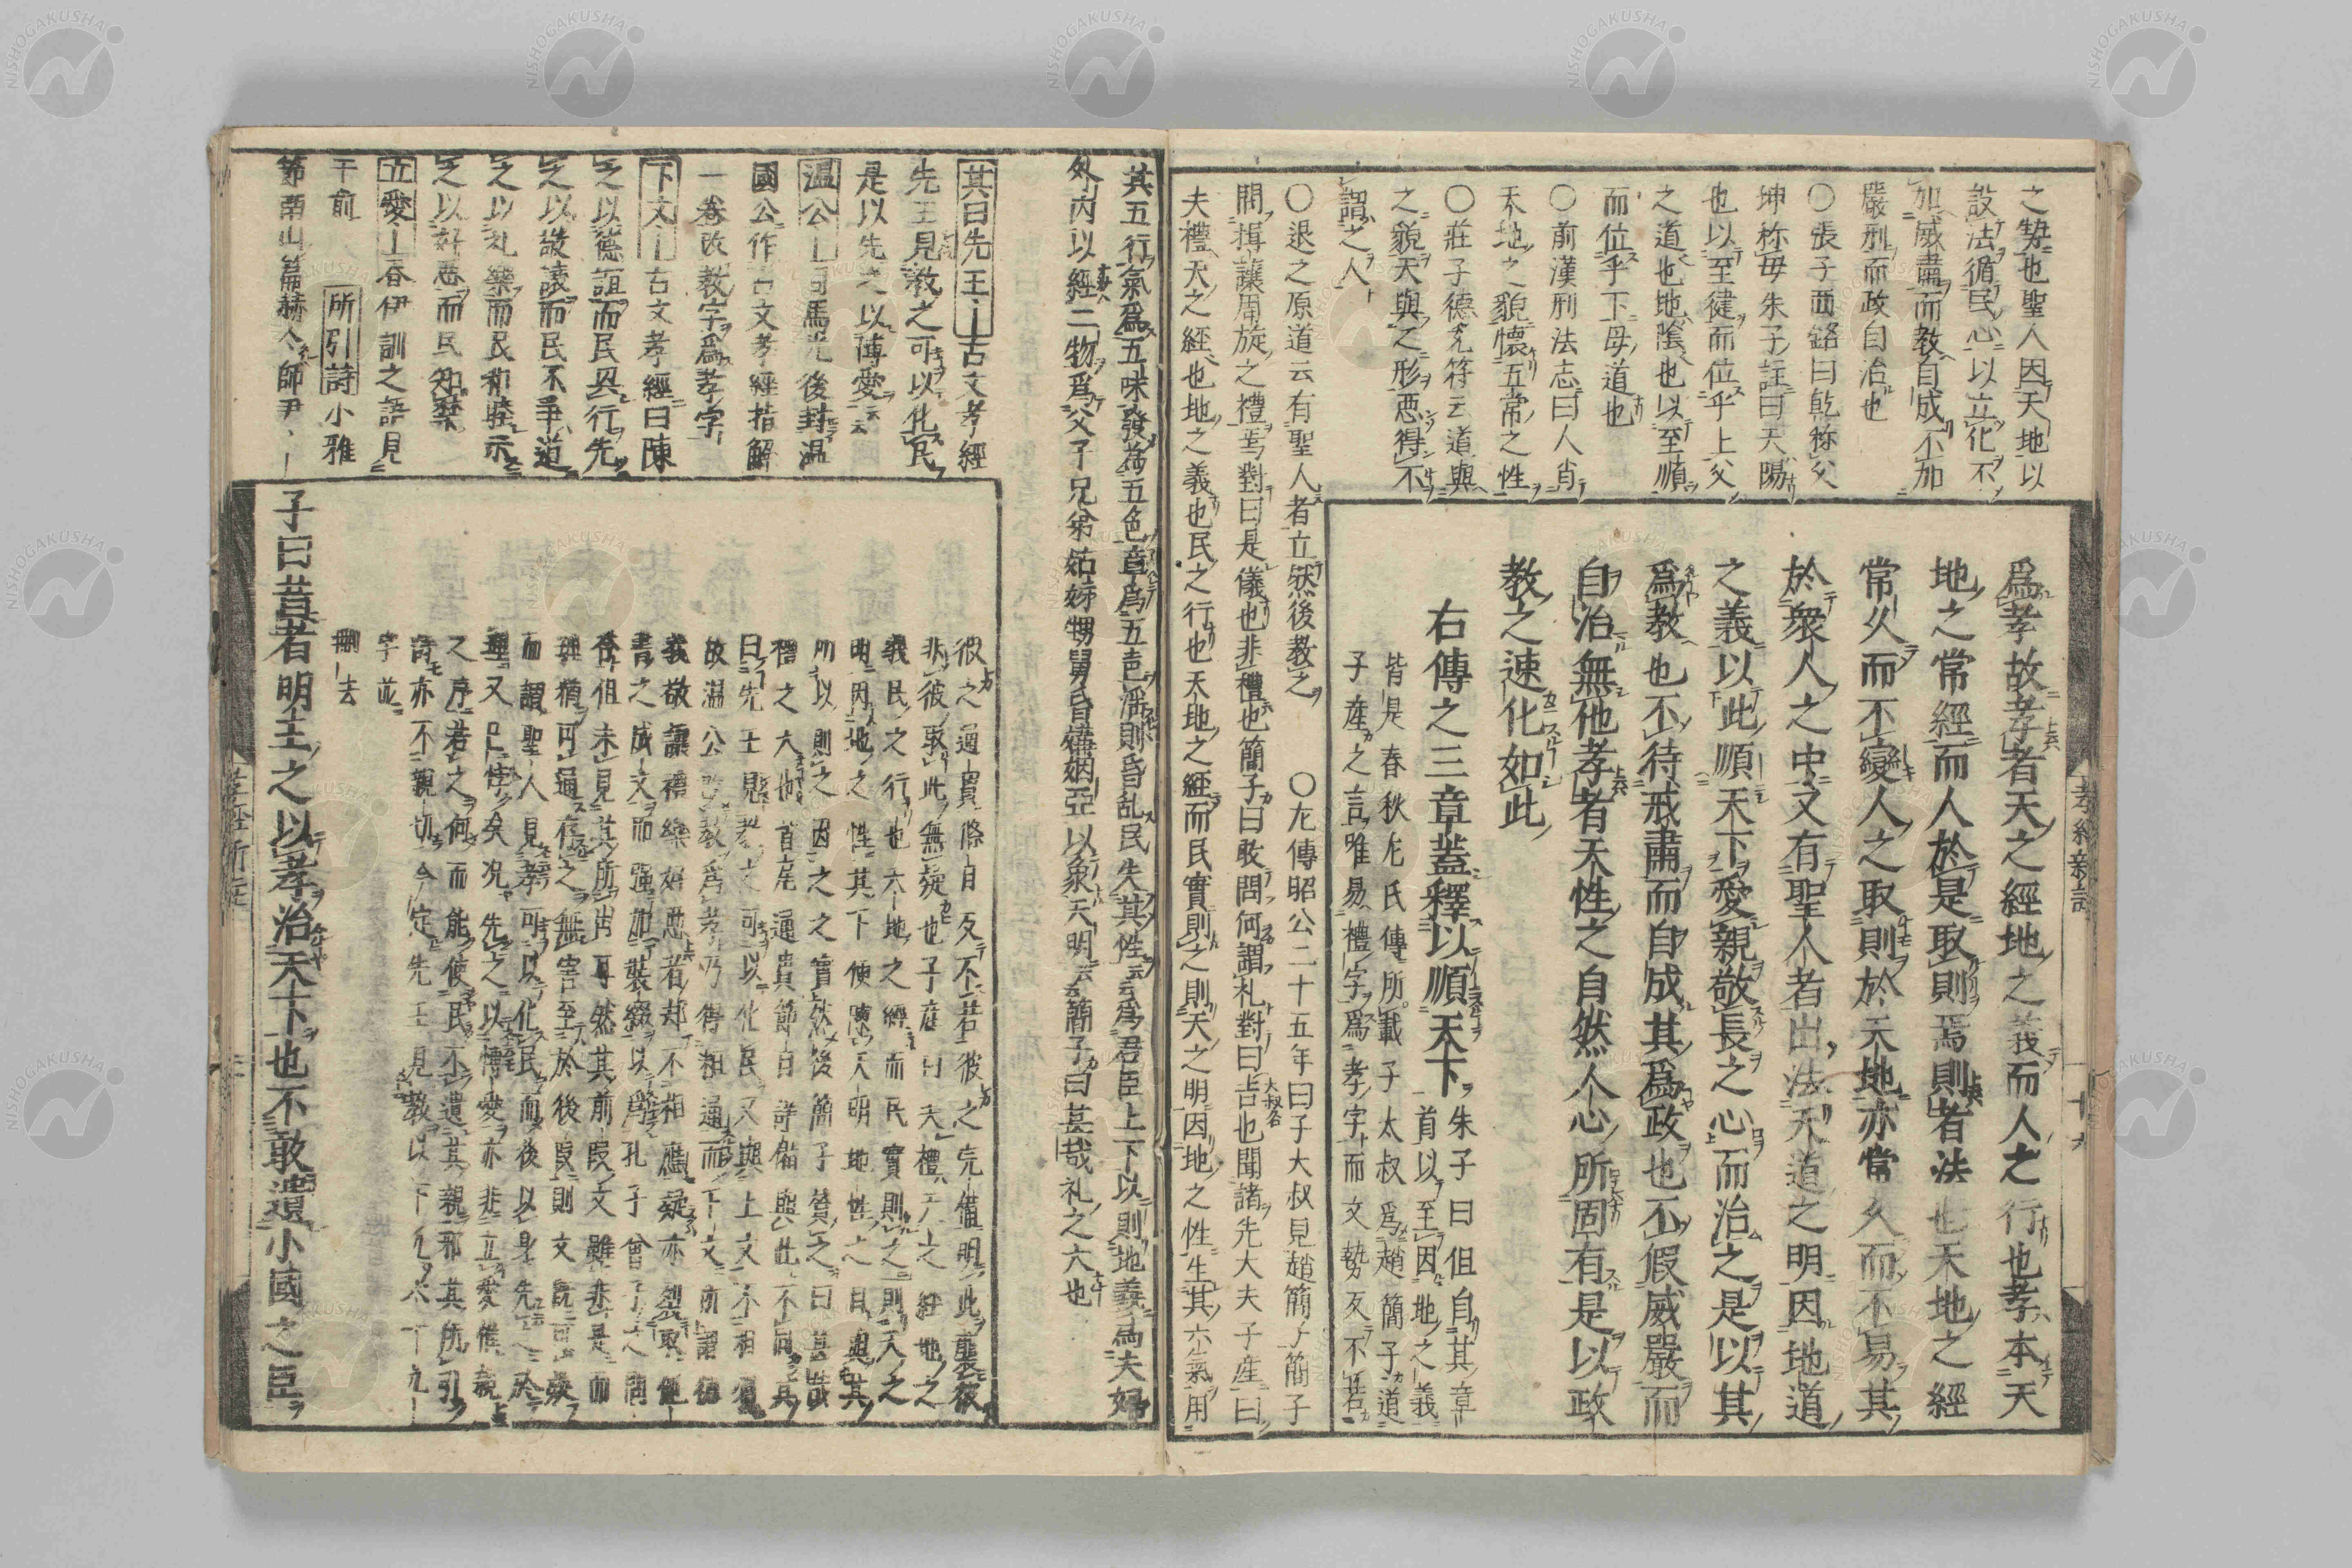 之勢也聖人因天地以
設法循民心以立化不
加威肅而教自成不加
嚴刑而政自治也
〇張子西銘曰乾称父
坤称母朱子註曰天陽
也以至健而位乎上父
之道也地陰也以至順
而位乎下母道也
〇前漢刑法志曰人肖
天地之貌懷五常之性
〇莊子德充符云道與
之貌天與之形惡得不
謂之人
爲孝故孝者天之經地之義而人之行也孝本天
地之常經而人於是取則焉則者法也天地之經
常久而不變人之取則於天地亦常久而不易其
於衆人之中又有聖人者出法天道之明因地道
之義以此順天下愛親敬長之心而治之是以其
爲教也不待戒肅而自成其爲政也不假威嚴而
自治無他孝者天性之自然人心所固有是以政
教之速化如此
右傳之三章蓋釋以順天下
朱子曰但自其章
首以至因地之義
皆是春秋左氏傳所載子太叔爲趙簡子道
子産之言唯易禮字爲孝字而文勢反不若
〇退之原道云有聖人者立然後教之 〇左傳昭公二十五年曰子大叔見趙簡子簡子
問揖讓周旋之禮焉對曰是儀也非禮也簡子曰敢問何謂礼對曰吉也聞諸先大夫子産曰
大叔名
夫禮天之經也地之義也民之行也天地之經而民實則之則天之明因地之性生其六氣用
孝經新註
十九
其五行氣爲五味發為五色章爲五声淫則昏乱民失其性云云爲君臣上下以則地義爲夫婦
外内以經二物爲父子兄弟姑姉甥舅昏媾姻亞以象天明云云簡子曰甚哉礼之大也
其曰先王古文孝經
先王見教之可以化民
是以先之以博愛云云
温公司馬光後封温
國公作古文孝經指解
一卷改教字爲孝字
下文古文孝經曰陳
之以德誼而民興行先
之以敬讓而民不爭道
之以礼樂而民和睦示
之以好惡而民知禁
立愛春伊訓之語見
于前 所引詩小雅
節南山篇赫〻師尹
彼之通貫條目反不若彼之完備明此襲彼
非彼取此無疑也子産曰天禮天之經地之
義民之行也天地之經而民實則之則天之
明因地之性其下便陳天明地性之目與其
所以則之因之之實然後簡子賛之曰甚哉
禮之大也首尾通貫節目詳備與此不同其
曰先王見教之可以化民又與上文不相屬
故温公改教爲孝乃得粗通而下文所謂德
義敬讓禮樂好惡者却不相應疑亦裂取他
書之成文而強加裝綴以爲孔子曾子之問
答但未見其所出耳然其前段文雖非是而
理猶可通存之無害至於後段則文既可疑
而謂聖人見孝可以化民而後以身先之於
理又已悖矣况先之以博愛亦非立愛惟親
之序若之何而能使民不遺其親邪其所引
詩亦不親切今定先王見教以下凡六十九
字並
刪去
子曰昔者明王之以孝治天下也不敢遺小國之臣